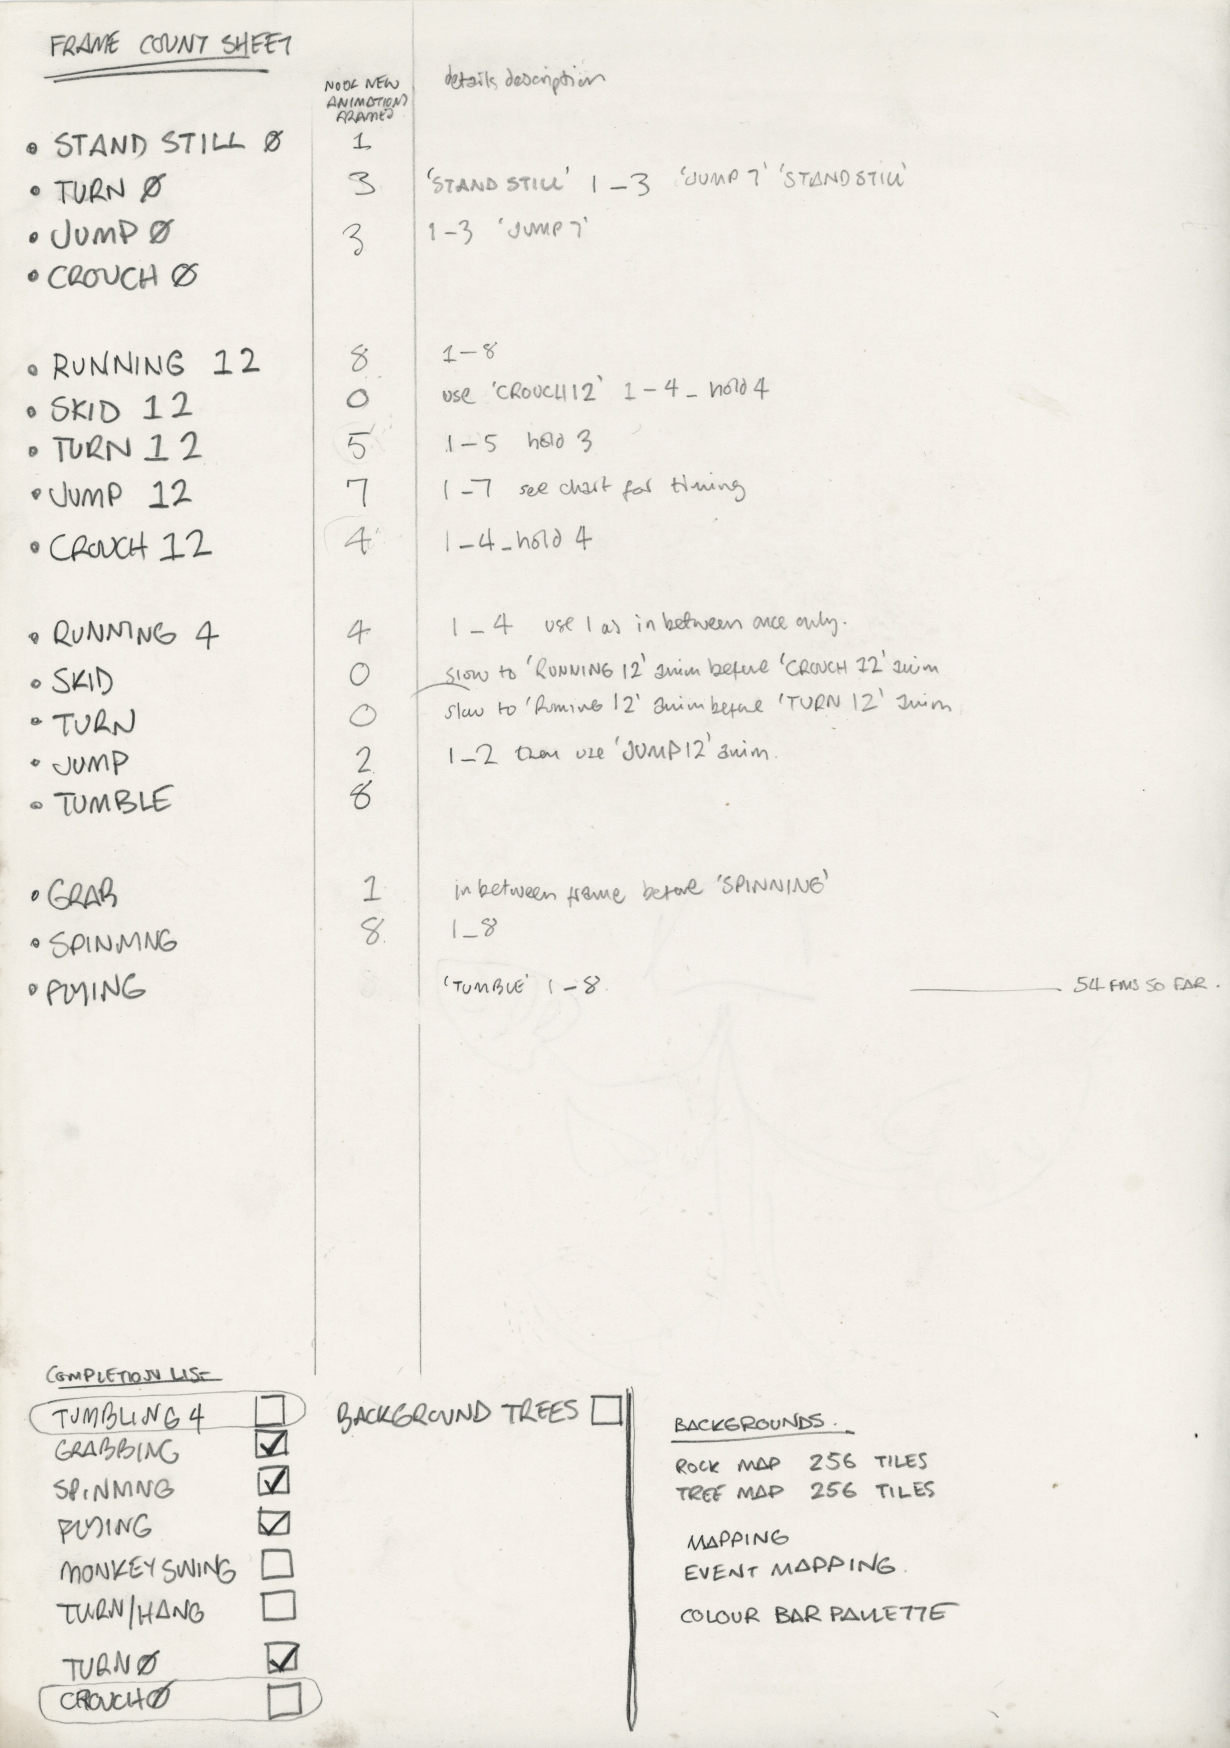 FRAME COUNT SHEET
NO OF NEW
ANIMATION
FRAMES
details description
• STAND STILL Ø 1
• TURN Ø 3 'STAND STILL' 1-3 'JUMP 7' 'STAND STILL'
• JUMP Ø 3 1-3 'JUMP 7'
• CROUCH Ø
• RUNNING 12 8 1-8
• SKID 12 0 use 'CROUCH 12' 1-4 - hold 4
• TURN 12 5 1-5 hold 3
• JUMP 12 7 1-7 see chart for timing
• CROUCH 12 4 1-4-hold 4
• RUNNING 4 4 1-4 use 1 as in between once only.
• SKID 0 slow to 'RUNNING 12' anim before 'CROUCH 12' anim
• TURN 0 slow to 'Running 12' anim before 'TURN 12' anim
• JUMP 2 1-2 then use 'JUMP 12' anim.
• TUMBLE 8
• GRAB 1 in between frame before 'SPINNING'
• SPINNING 8 1-8
• FLYING 'TUMBLE' 1-8 54 FMS SO FAR.
COMPLETION LIST
TUMBLING 4
GRABBING ✓
SPINNING ✓
FLYING ✓
MONKEY SWING
TURN/HANG
TURN Ø ✓
CROUCH Ø
BACKGROUND TREES
BACKGROUNDS.
ROCK MAP 256 TILES
TREE MAP 256 TILES
MAPPING
EVENT MAPPING.
COLOUR BAR PALLETTE